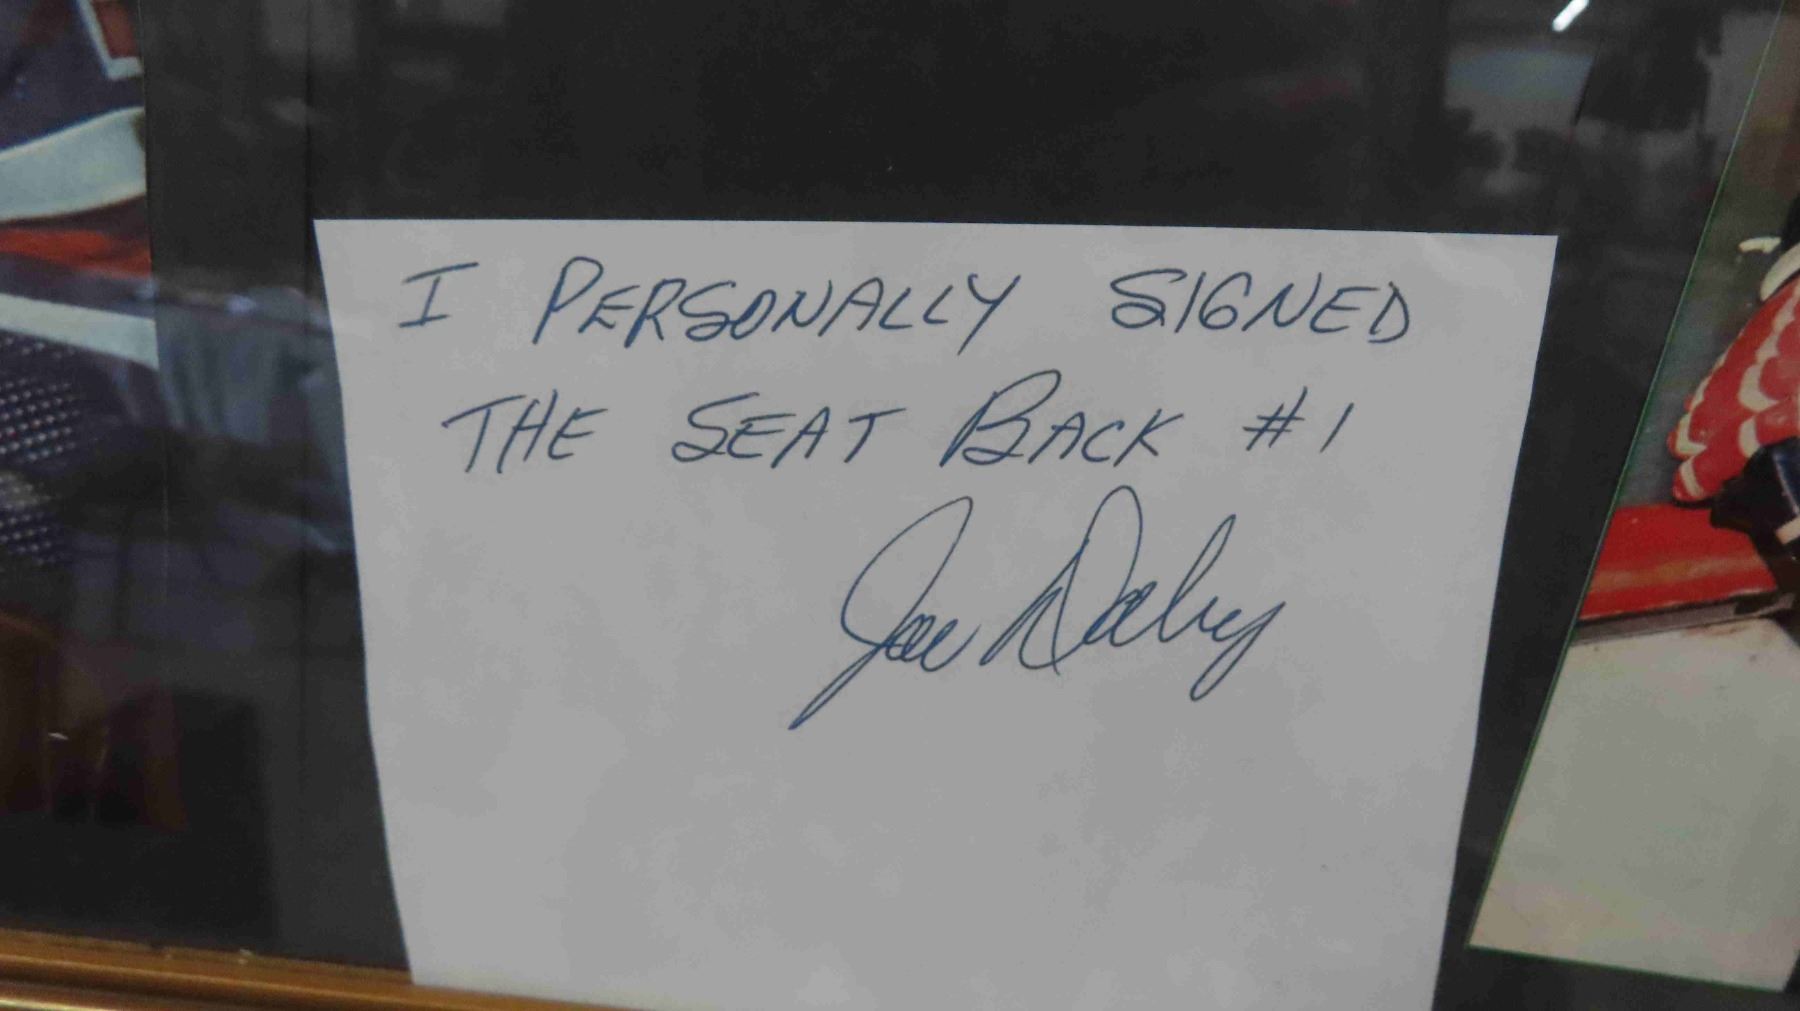 I PERSONALLY SIGNED
THE SEAT BACK #1
Joe Daley